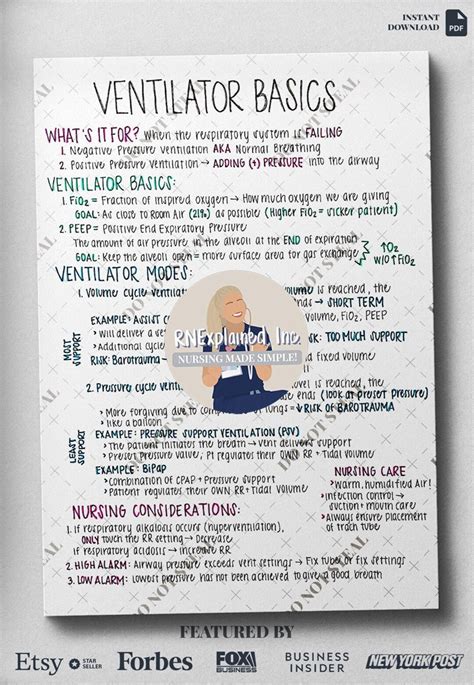 INSTANT
DOWNLOAD
PDF
VENTILATOR BASICS
WHAT'S IT FOR? When the respiratory system is FAILING
1. Negative Pressure Ventilation AKA Normal Breathing
2. Positive Pressure Ventilation → ADDING (+) PRESSURE into the airway
VENTILATOR BASICS:
1. FiO2 = Fraction of inspired oxygen → How much oxygen we are giving
GOAL: As close to Room Air (21%) as possible (Higher FiO2 = sicker patient)
2. PEEP = Positive End Expiratory Pressure
The amount of air pressure in the alveoli at the END of expiration
GOAL: Keep the alveoli open = more surface area for gas exchange
↑O2
w/o ↑FiO2
VENTILATOR MODES:
1. Volume cycle ventilat
ends → SHORT TERM
volume, FiO2, PEEP
MOST
SUPPORT
EXAMPLE: ASSIST C
> Will deliver a se
RISK: TOO MUCH SUPPORT
> Additional cycle
fixed volume
RISK: Barotrauma
2. Pressure cycle ventilat
level is reached, the
ends (look at preset pressure)
> More forgiving due to comp
↓ RISK OF BAROTRAUMA
like a balloon
LEAST
SUPPORT
EXAMPLE: PRESSURE SUPPORT VENTILATION (PSV)
> The patient initiates the breath → vent delivers support
> Preset Pressure Valve, Pt regulates their own RR + Tidal volume
EXAMPLE: BiPap
> Combination of CPAP + Pressure support
> Patient regulates their own RR + Tidal Volume
NURSING CARE
> Warm, humidified Air!
> Infection control →
suction + mouth care
> Always ensure placement
of trach tube
RNExplained, Inc.
NURSING MADE SIMPLE!
NURSING CONSIDERATIONS:
1. If respiratory alkalosis occurs (hyperventilation),
ONLY touch the RR setting → decrease
If respiratory acidosis → increase RR
2. HIGH ALARM: Airway pressure exceeds vent settings → Fix tube or fix settings
3. LOW ALARM: Lowest pressure has not been achieved to give a good breath
DO NOT STEAL
DO NOT STEAL
DO NOT STEAL
DO NOT STEAL
FEATURED BY
Etsy STAR SELLER
Forbes
FOX BUSINESS
BUSINESS INSIDER
NEW YORK POST